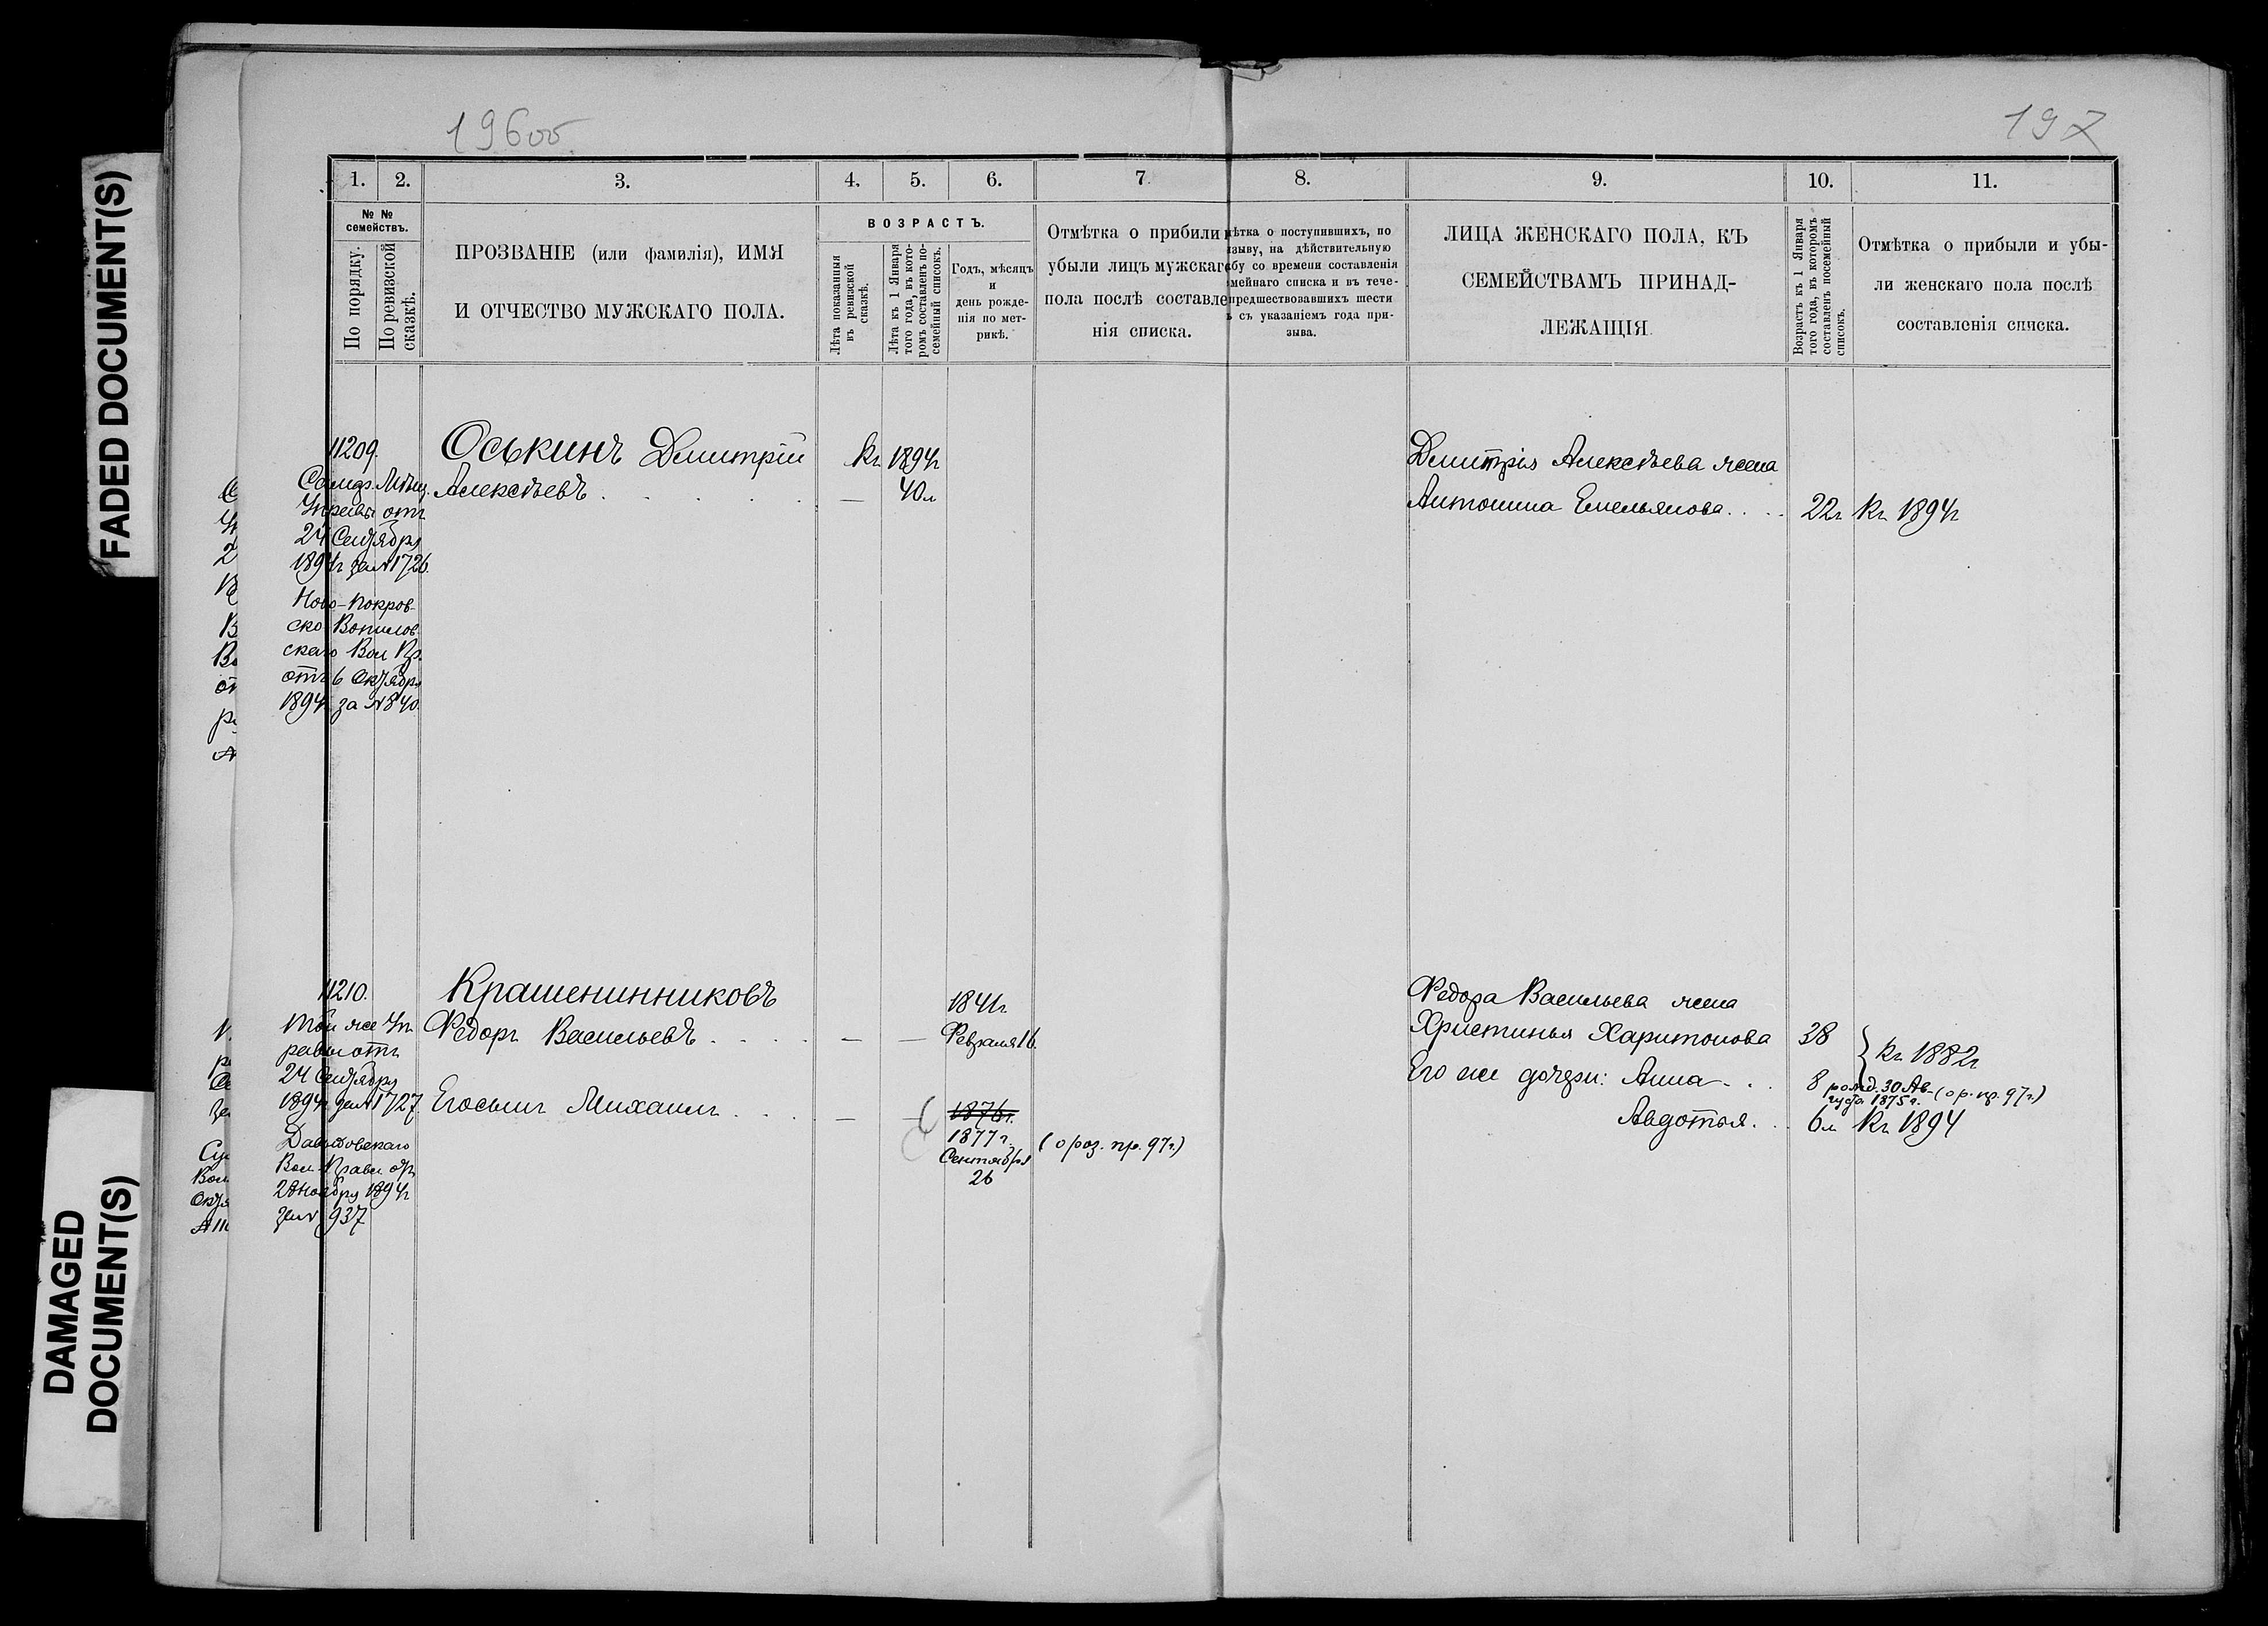 FADED DOCUMENT(S)
DAMAGED
DOCUMENT(S)
196об.
197
1. 2. 3. 4. 5. 6. 7. 8. 9. 10. 11.
№ №
семействъ.
По порядку.
По ревизской
сказкѣ.
ПРОЗВАНІЕ (или фамилія), ИМЯ
И ОТЧЕСТВО МУЖСКАГО ПОЛА.
ВОЗРАСТЪ.
Лѣта показанныя
въ ревизской
сказкѣ.
Лѣта къ 1 Января
того года, въ кото-
ромъ составленъ по-
семейный списокъ.
Годъ, мѣсяцъ
и
день рожде-
нія по мет-
рикѣ.
Отмѣтка о прибили
убыли лицъ мужскаг
пола послѣ составле
нія списка.
мѣтка о поступившихъ, по
изыву, на дѣйствительную
бу со времени составленія
мейнаго списка и въ тече-
предшествовавшихъ шести
ъ съ указаніемъ года при-
зыва.
ЛИЦА ЖЕНСКАГО ПОЛА, КЪ
СЕМЕЙСТВАМЪ ПРИНАД-
ЛЕЖАЩІЯ
Возрастъ къ 1 Января
того года, въ которомъ
составленъ посемейный
списокъ.
Отмѣтка о прибыли и убы-
ли женскаго пола послѣ
составленія списка.
11209.
Самар. Мѣщ.
Управы отъ
24 Сентября
1894г за №1726.
Ново-Покров-
ско
скаго Вол Пр.
отъ 6 Октября
1894 за №840.
Оськинъ Дмитрій
Алексѣевъ . . . . .
Къ 1894г
— 40л
Дмитрія Алексѣева жена
Антонина Емельянова. . . . 22г Къ 1894г
11210.
Той же Уп
равы отъ
24 Сентября
1894г за №1727
Давыдовскаго
Вол. Правл отъ
28 Ноября 1894г
за № 937
Крашенинниковъ
Федоръ Васильевъ . . . . — —
1841г
Февраля 16.
Егосынъ Михаилъ . . . — —
1876г.
1877г.
Сентября
26
(о роз. пр. 97г.)
Федора Васильева жена
Христинья Харитонова 38
} Къ 1882г
Его же дочери: Анна . . . 8
рожд. 30 Ав-
густа 1875г.
(о р. пр. 97г.)
Авдотья. . . 6л Къ 1894